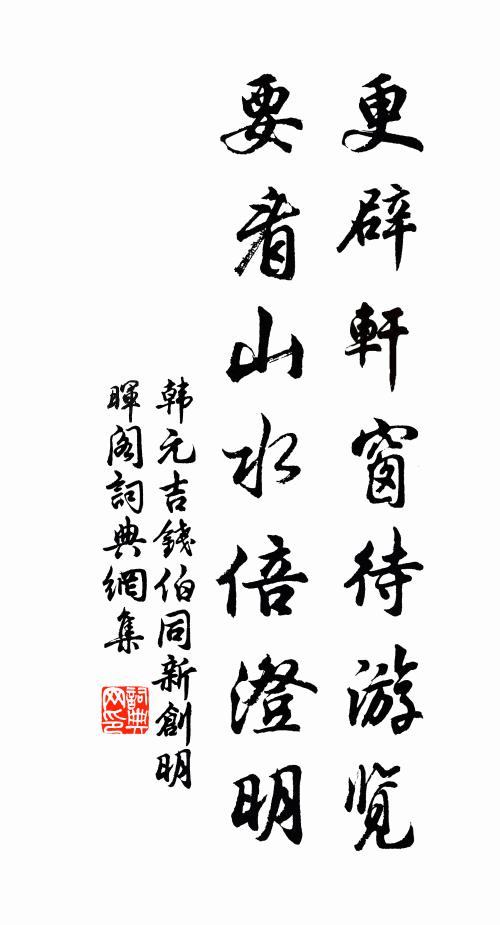 更辟軒窗待游览
要看山水倍澄明
韩元吉錢伯同新創明
暉阁詞典網集
詞典网印